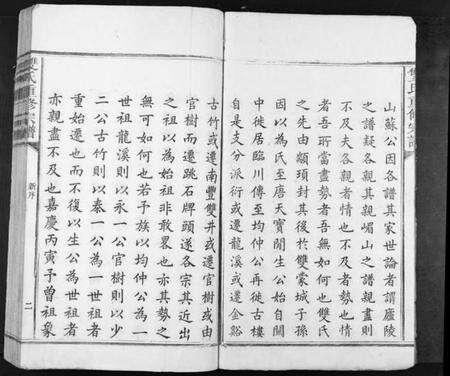 山蘇公因各譜其家世論者謂廬陵
之譜疑各親其親嵋山之譜親盡則
不及夫各親者情也不及者勢也情
者吾所當盡勢者吾無如何也雙氏
之先由顓頊封其後於雙蒙城子孫
因以為氏至唐天寶閒生公始自關
中徙居臨川傳至均仲公再徙古樓
自是支分派衍或遷龍溪或遷金谿
古竹或遷南豐雙井或遷官樹或由
官樹而遷跳石牌頭遂各宗其近出
之祖以為始祖非敢畧也亦其勢之
無可如何也若于族以均仲公為一
世祖龍溪則以永一公官樹則以少
二公古竹則以泰一公為一世祖者
重始遷也而不復以生公為世祖者
亦親盡不及也嘉慶丙寅子曾祖象
雙氏重修宗譜
新序
二